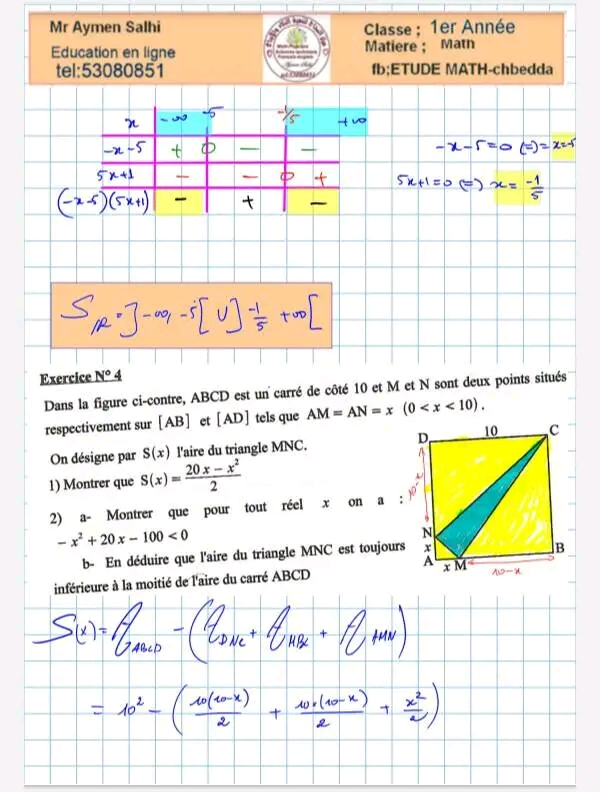 Mr Aymen Salhi
Education en ligne
tel:53080851
Classe ; 1er Année
Matiere ; Math
fb;ETUDE MATH-chbedda
x -∞ -5 -1/5 +∞
-x-5 + 0 - -
5x+1 - - 0 +
(-x-5)(5x+1) - + -
-x-5=0 (=)=x=-5
5x+1=0 (=) x= -1/5
S_IR = ]-∞, -5[ U ]-1/5 +∞[
Exercice N° 4
Dans la figure ci-contre, ABCD est un carré de côté 10 et M et N sont deux points situés
respectivement sur [AB] et [AD] tels que AM = AN = x (0 < x < 10).
On désigne par S(x) l'aire du triangle MNC.
1) Montrer que S(x) = (20x - x²)/2
2) a- Montrer que pour tout réel x on a :
- x² + 20x - 100 < 0
b- En déduire que l'aire du triangle MNC est toujours
inférieure à la moitié de l'aire du carré ABCD
D 10 C
10-x
N
x
A x M B
10-x
S(x) = A_ABCD - (A_DNC + A_MBC + A_AMN)
= 10² - (10(10-x)/2 + 10×(10-x)/2 + x²/2)